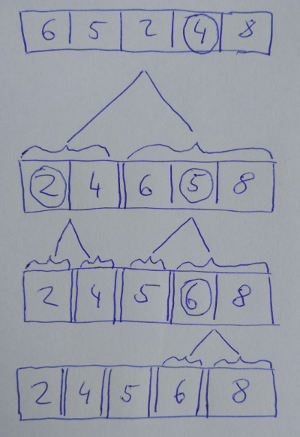 6 5 2 4 8
2 4 6 5 8
2 4 5 6 8
2 4 5 6 8